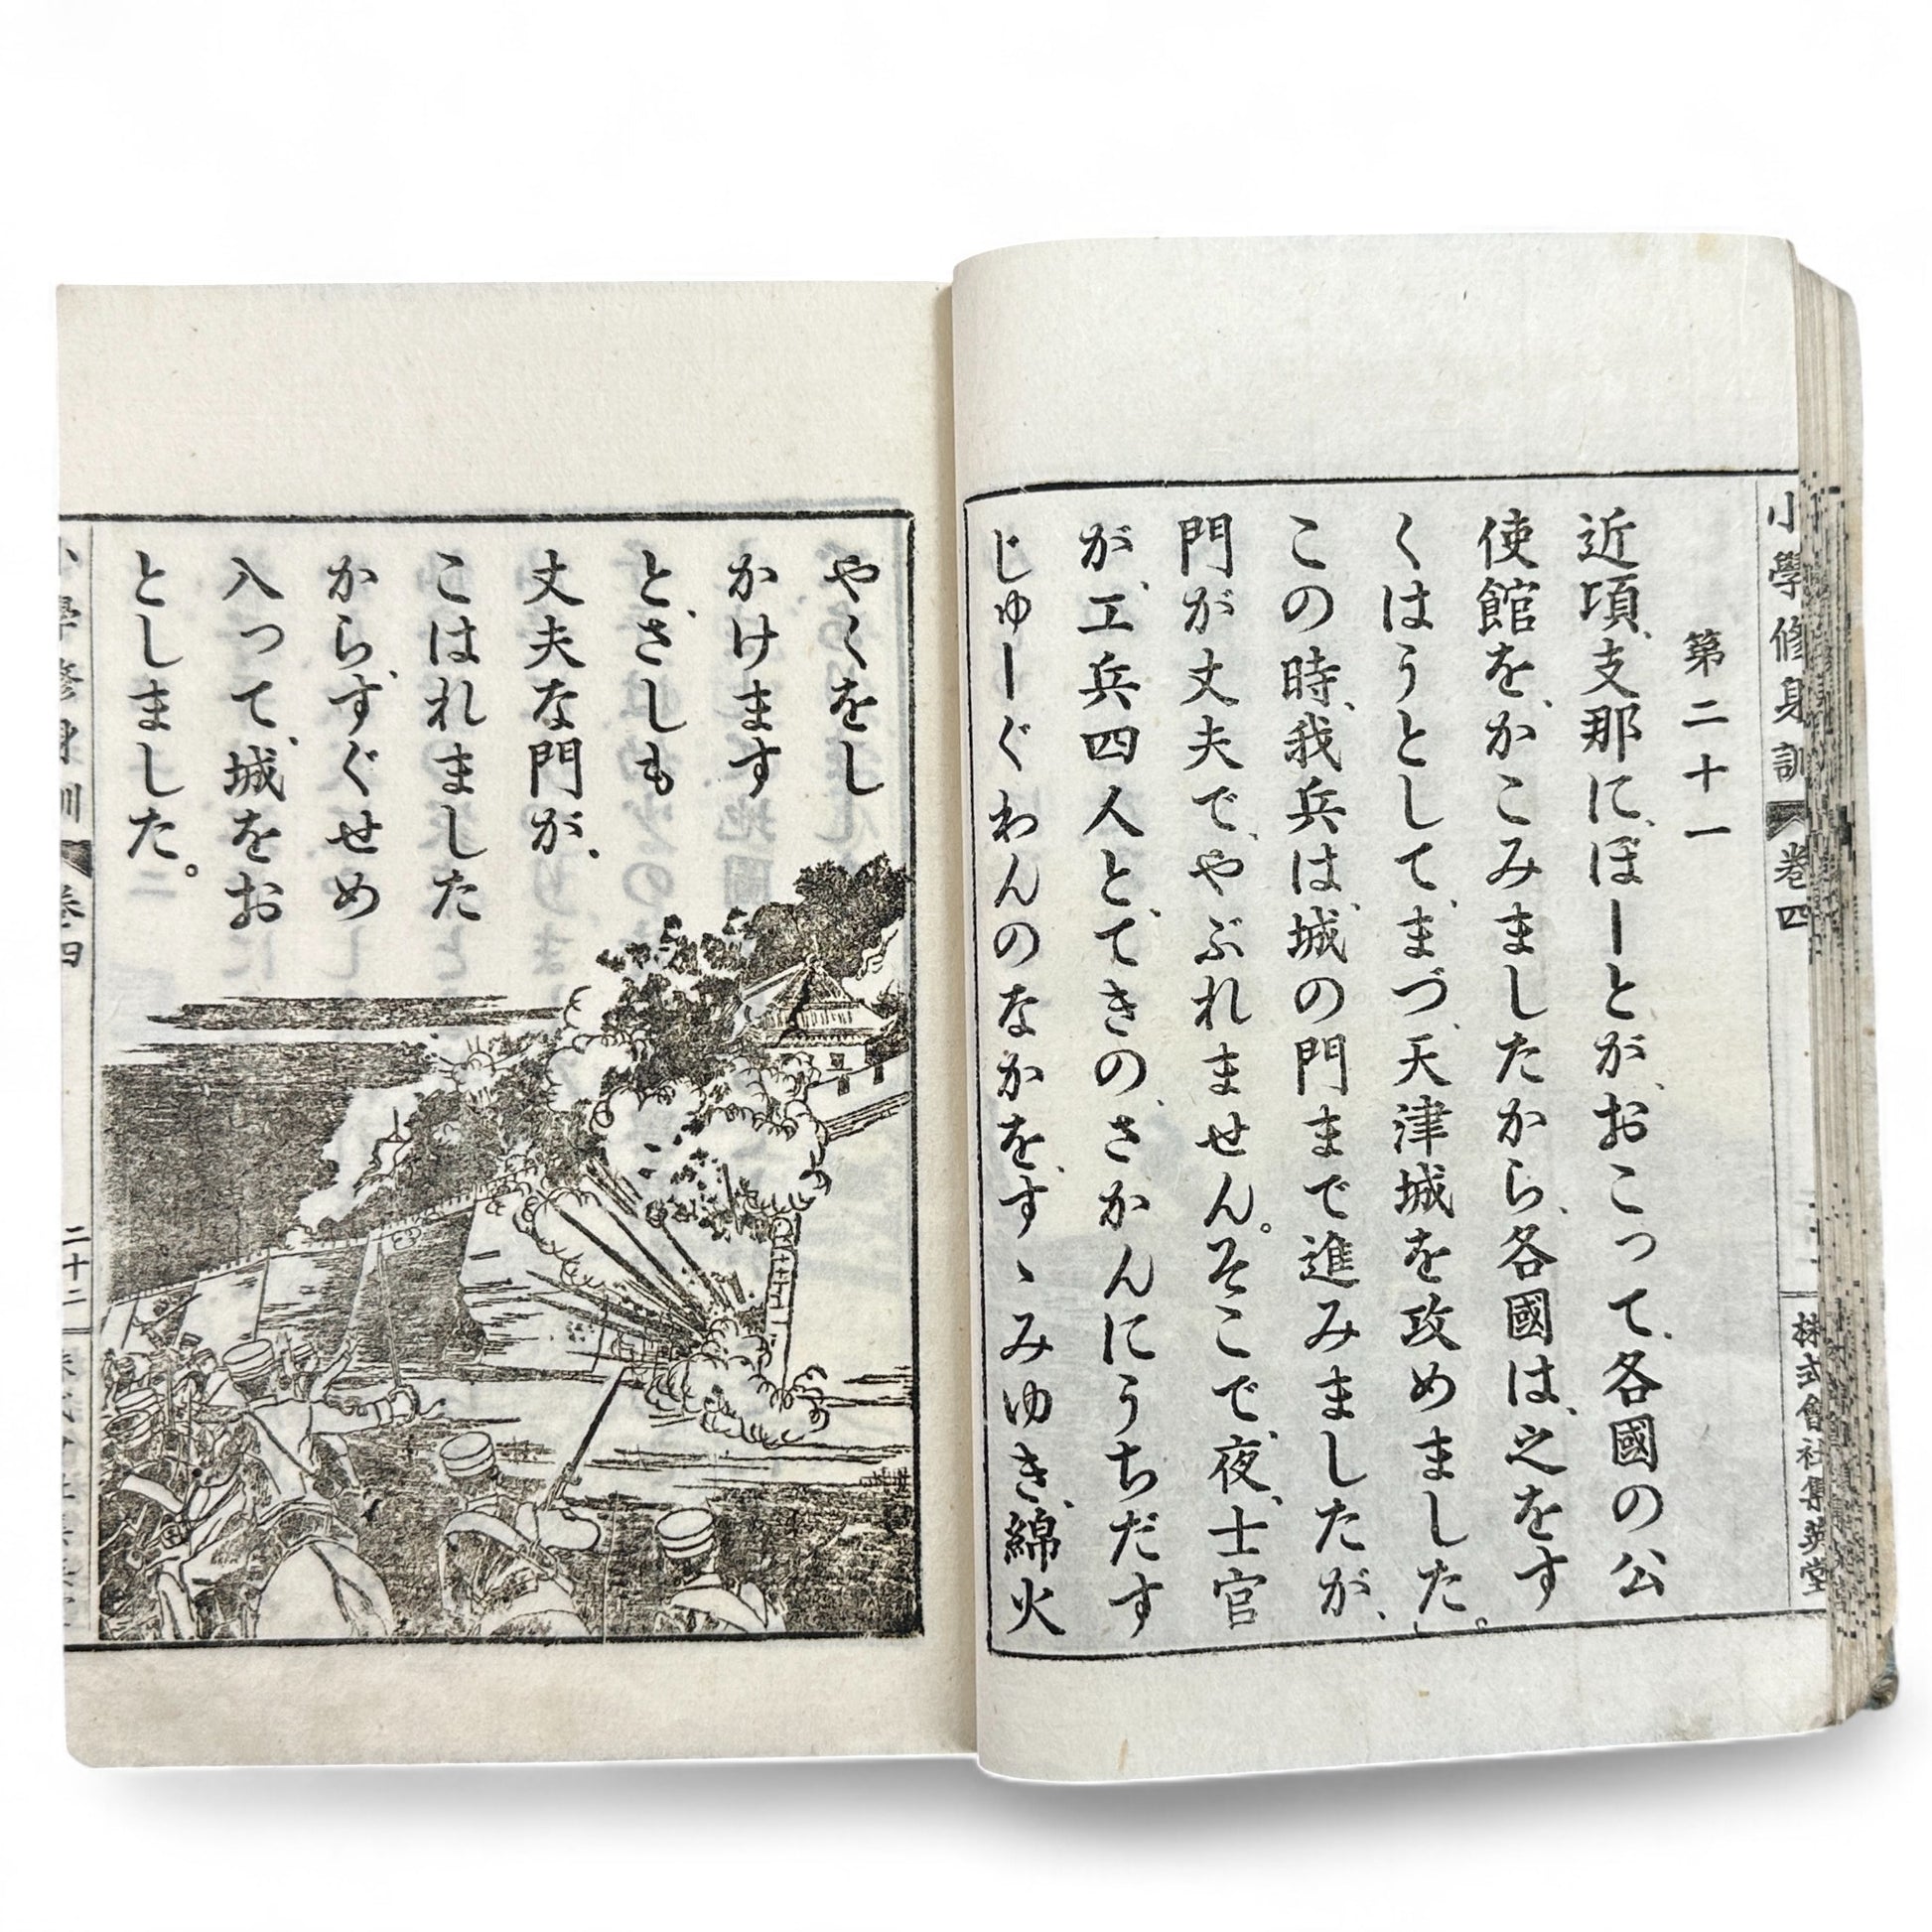 小學修身訓 卷四 株式會社集英堂
第二十一
近頃、支那に、ぼーとが、おこって、各國の公
使館を、かこみましたから、各國は、之をす
くはうとして、まづ、天津城を攻めました。
この時、我兵は、城の門まで進みましたが、
門が丈夫で、やぶれません。そこで、夜、士官
が、工兵四人と、てきの、さかんにうちだす
じゅーぐわんのなかを、すゝみゆき、綿火
やくをし
かけます
と、さしも
丈夫な門が、
こはれました
から、すぐせめ
入って、城をお
としました。
小學修身訓 卷四 二十二